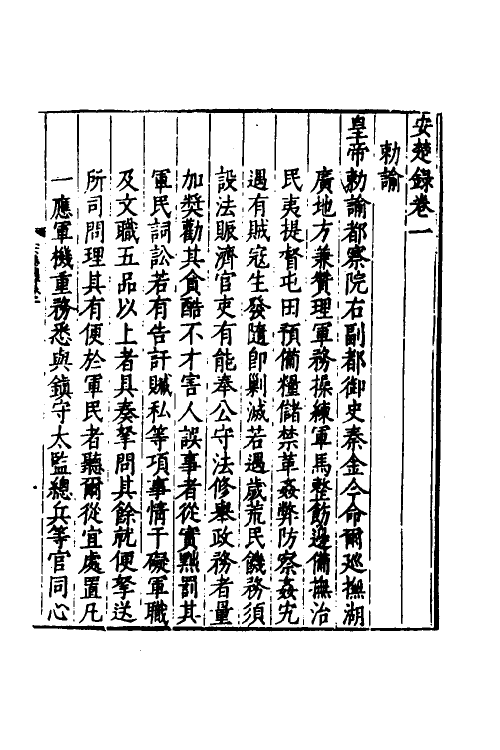 安楚錄卷一
勅諭
皇帝勅諭都察院右副都御史秦金今命爾巡撫湖
廣地方兼贊理軍務操練軍馬整飭邊備撫治
民夷提督屯田預備糧儲禁革姦弊防察姦宄
遇有賊寇生發隨即剿滅若遇歲荒民饑務須
設法賑濟官吏有能奉公守法修舉政務者量
加奬勸其貪酷不才害人誤事者從實黜罰其
軍民詞訟若有告訐贓私等項事情干礙軍職
及文職五品以上者具奏拏問其餘就便拏送
所司問理其有便於軍民者聽爾從宜處置凡
一應軍機重務悉與鎮守太監總兵等官同心